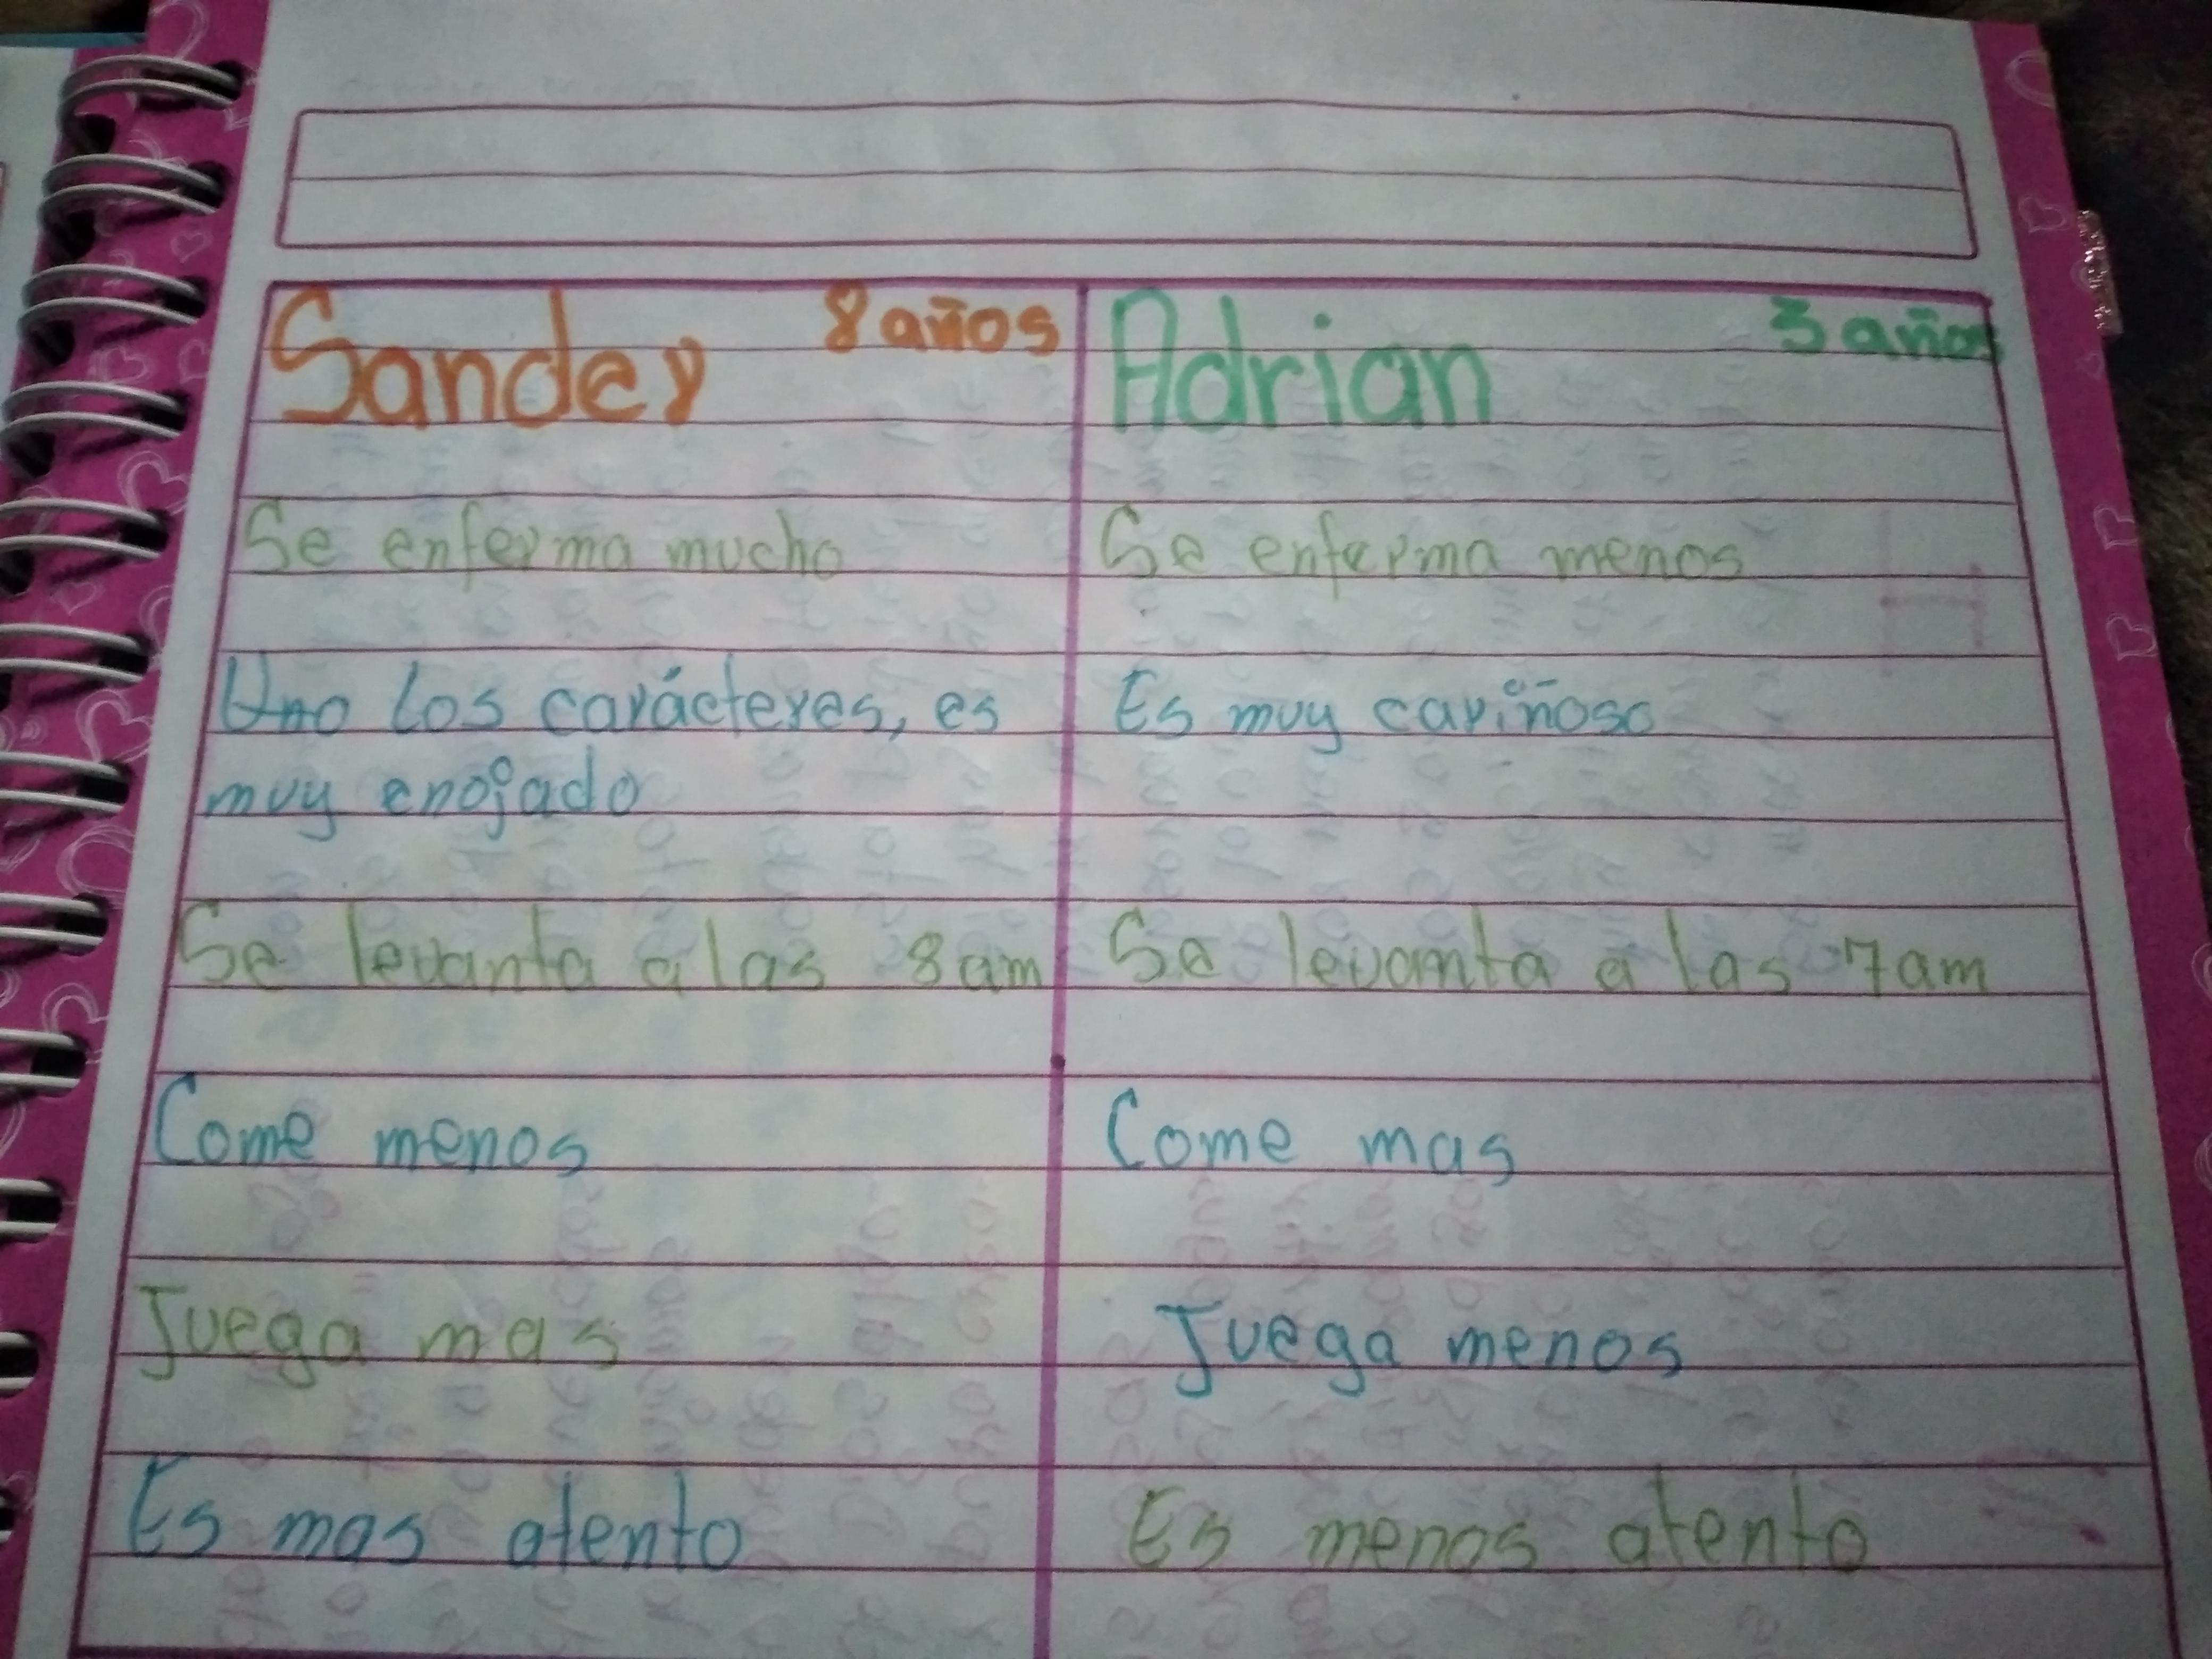 Sander 8 años
Se enferma mucho
Uno los carácteres, es
muy enojado
Se levanta a las 8am
Come menos
Juega mas
Es mas atento
Adrian 3 años
Se enferma menos
Es muy cariñoso
Se levamta a las 7am
Come mas
Juega menos
Es menos atento